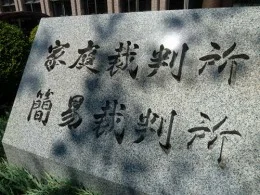 家庭裁判所
簡易裁判所